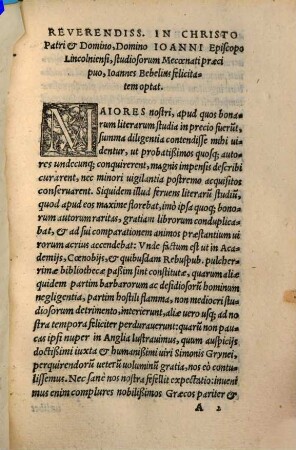 REVERENDISS. IN CHRISTO
Patri & Domino, Domino IOANNI Episcopo
Lincolniensi, studiosorum Mecœnati præci
puo, Ioannes Bebelius felicita-
tem optat.
MAIORES nostri, apud quos bona-
rum literarum studia in precio fuerūt,
summa diligentia contendisse mihi ui-
dentur, ut probatißimos quosq; auto-
res undecunq; conquirerent, magnis impensis describi
curarent, nec minori uigilantia postremo acquisitos
conseruarent. Siquidem illud feruens literarū studiū,
quod apud eos maxime florebat, imò ipsa quoq; bono-
rum autorum raritas, gratiam librorum conduplica-
bat, & ad sui comparationem animos præstantium ui-
rorum acrius accendebat: Vnde factum est ut in Aca-
demijs, Cœnobijs, & quibusdam Rebuspub. pulcher-
rimæ bibliothecæ paßim sint constitutæ, quarum aliæ
quidem partim barbarorum ac desidiosorū hominum
negligentia, partim hostili flamma, non mediocri studi-
osorum detrimento, interierunt, aliæ uero usq; ad no-
stra tempora feliciter perdurauerunt: quarū non pau-
cas ipsi nuper in Anglia lustrauimus, quum auspicijs
doctißimi iuxta & humanißimi uiri Simonis Grynei,
perquirendorū ueterū uoluminū gratia, nos eò contu-
lissemus. Nec sanè nos nostra fefellit expectatio: inueni
mus enim complures nobilißimos Græcos pariter &
A 2